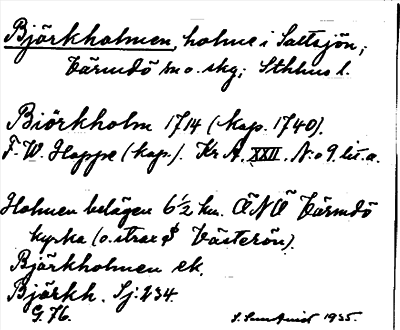 Björkholmen, holme i Saltsjön;
Värmdö sn o. skg; Sthlms l.
Biörkholm 1714 (kop. 1740).
F. W. Hoppe (kop.). Kr A. XXII. No 9 lit. a.
Holmen belägen 6 1/2 km. ÖNÖ Värmdö
kyrka (o. strax S Västerön).
Björkholmen ek.
Björkh. Sj: 234.
G. 76.
1935.